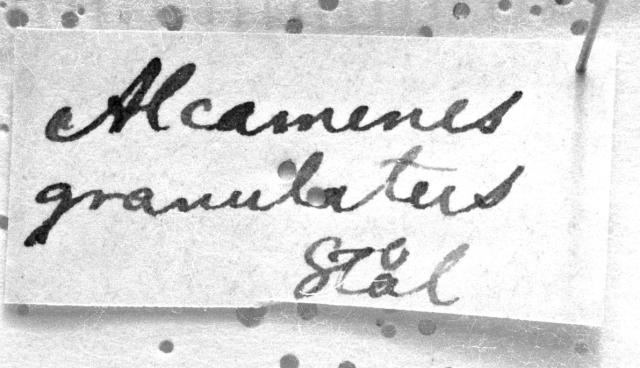 Alcamenes
granulatus
Stål